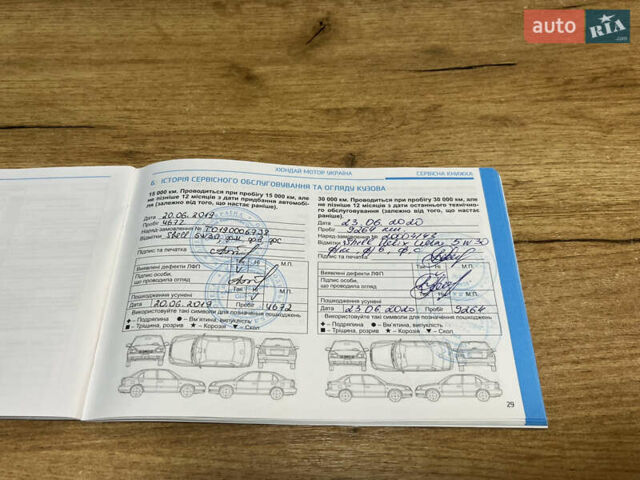 auto RIA.com
ХЮНДАЙ МОТОР УКРАЇНА
СЕРВІСНА КНИЖКА
6. ІСТОРІЯ СЕРВІСНОГО ОБСЛУГОВУВАННЯ ТА ОГЛЯДУ КУЗОВА
15 000 км. Проводиться при пробігу 15 000 км, але
не пізніше 12 місяців з дати придбання автомобі-
ля (залежно від того, що настає раніше).
Дата 20.06.2019
Пробіг 4672
Наряд-замовлення №
Відмітки Shell 5W30
Підпис та печатка
М.П.
Виявлені дефекти ЛФП Так Ні
Підпис особи,
що проводила огляд М.П.
Пошкодження усунені
Дата 20.06.2019 Пробіг 4672
Використовуйте такі символи для позначення пошкоджень
– Подряпина – Вм'ятина, випуклість
– Тріщина, розрив – Корозія – Скол
30 000 км. Проводиться при пробігу 30 000 км, але
не пізніше 12 місяців з дати останнього технічно-
го обслуговування (залежно від того, що настає
раніше).
Дата 23.06.2020
Пробіг 9264 км
Наряд-замовлення №
Відмітки Shell Helix Ultra 5W30
Підпис та печатка
М.П.
Виявлені дефекти ЛФП Так Ні
Підпис особи,
що проводила огляд М.П.
Пошкодження усунені
Дата 23.06.2020 Пробіг 9264
Використовуйте такі символи для позначення пошкоджень
– Подряпина – Вм'ятина, випуклість
– Тріщина, розрив – Корозія – Скол
29